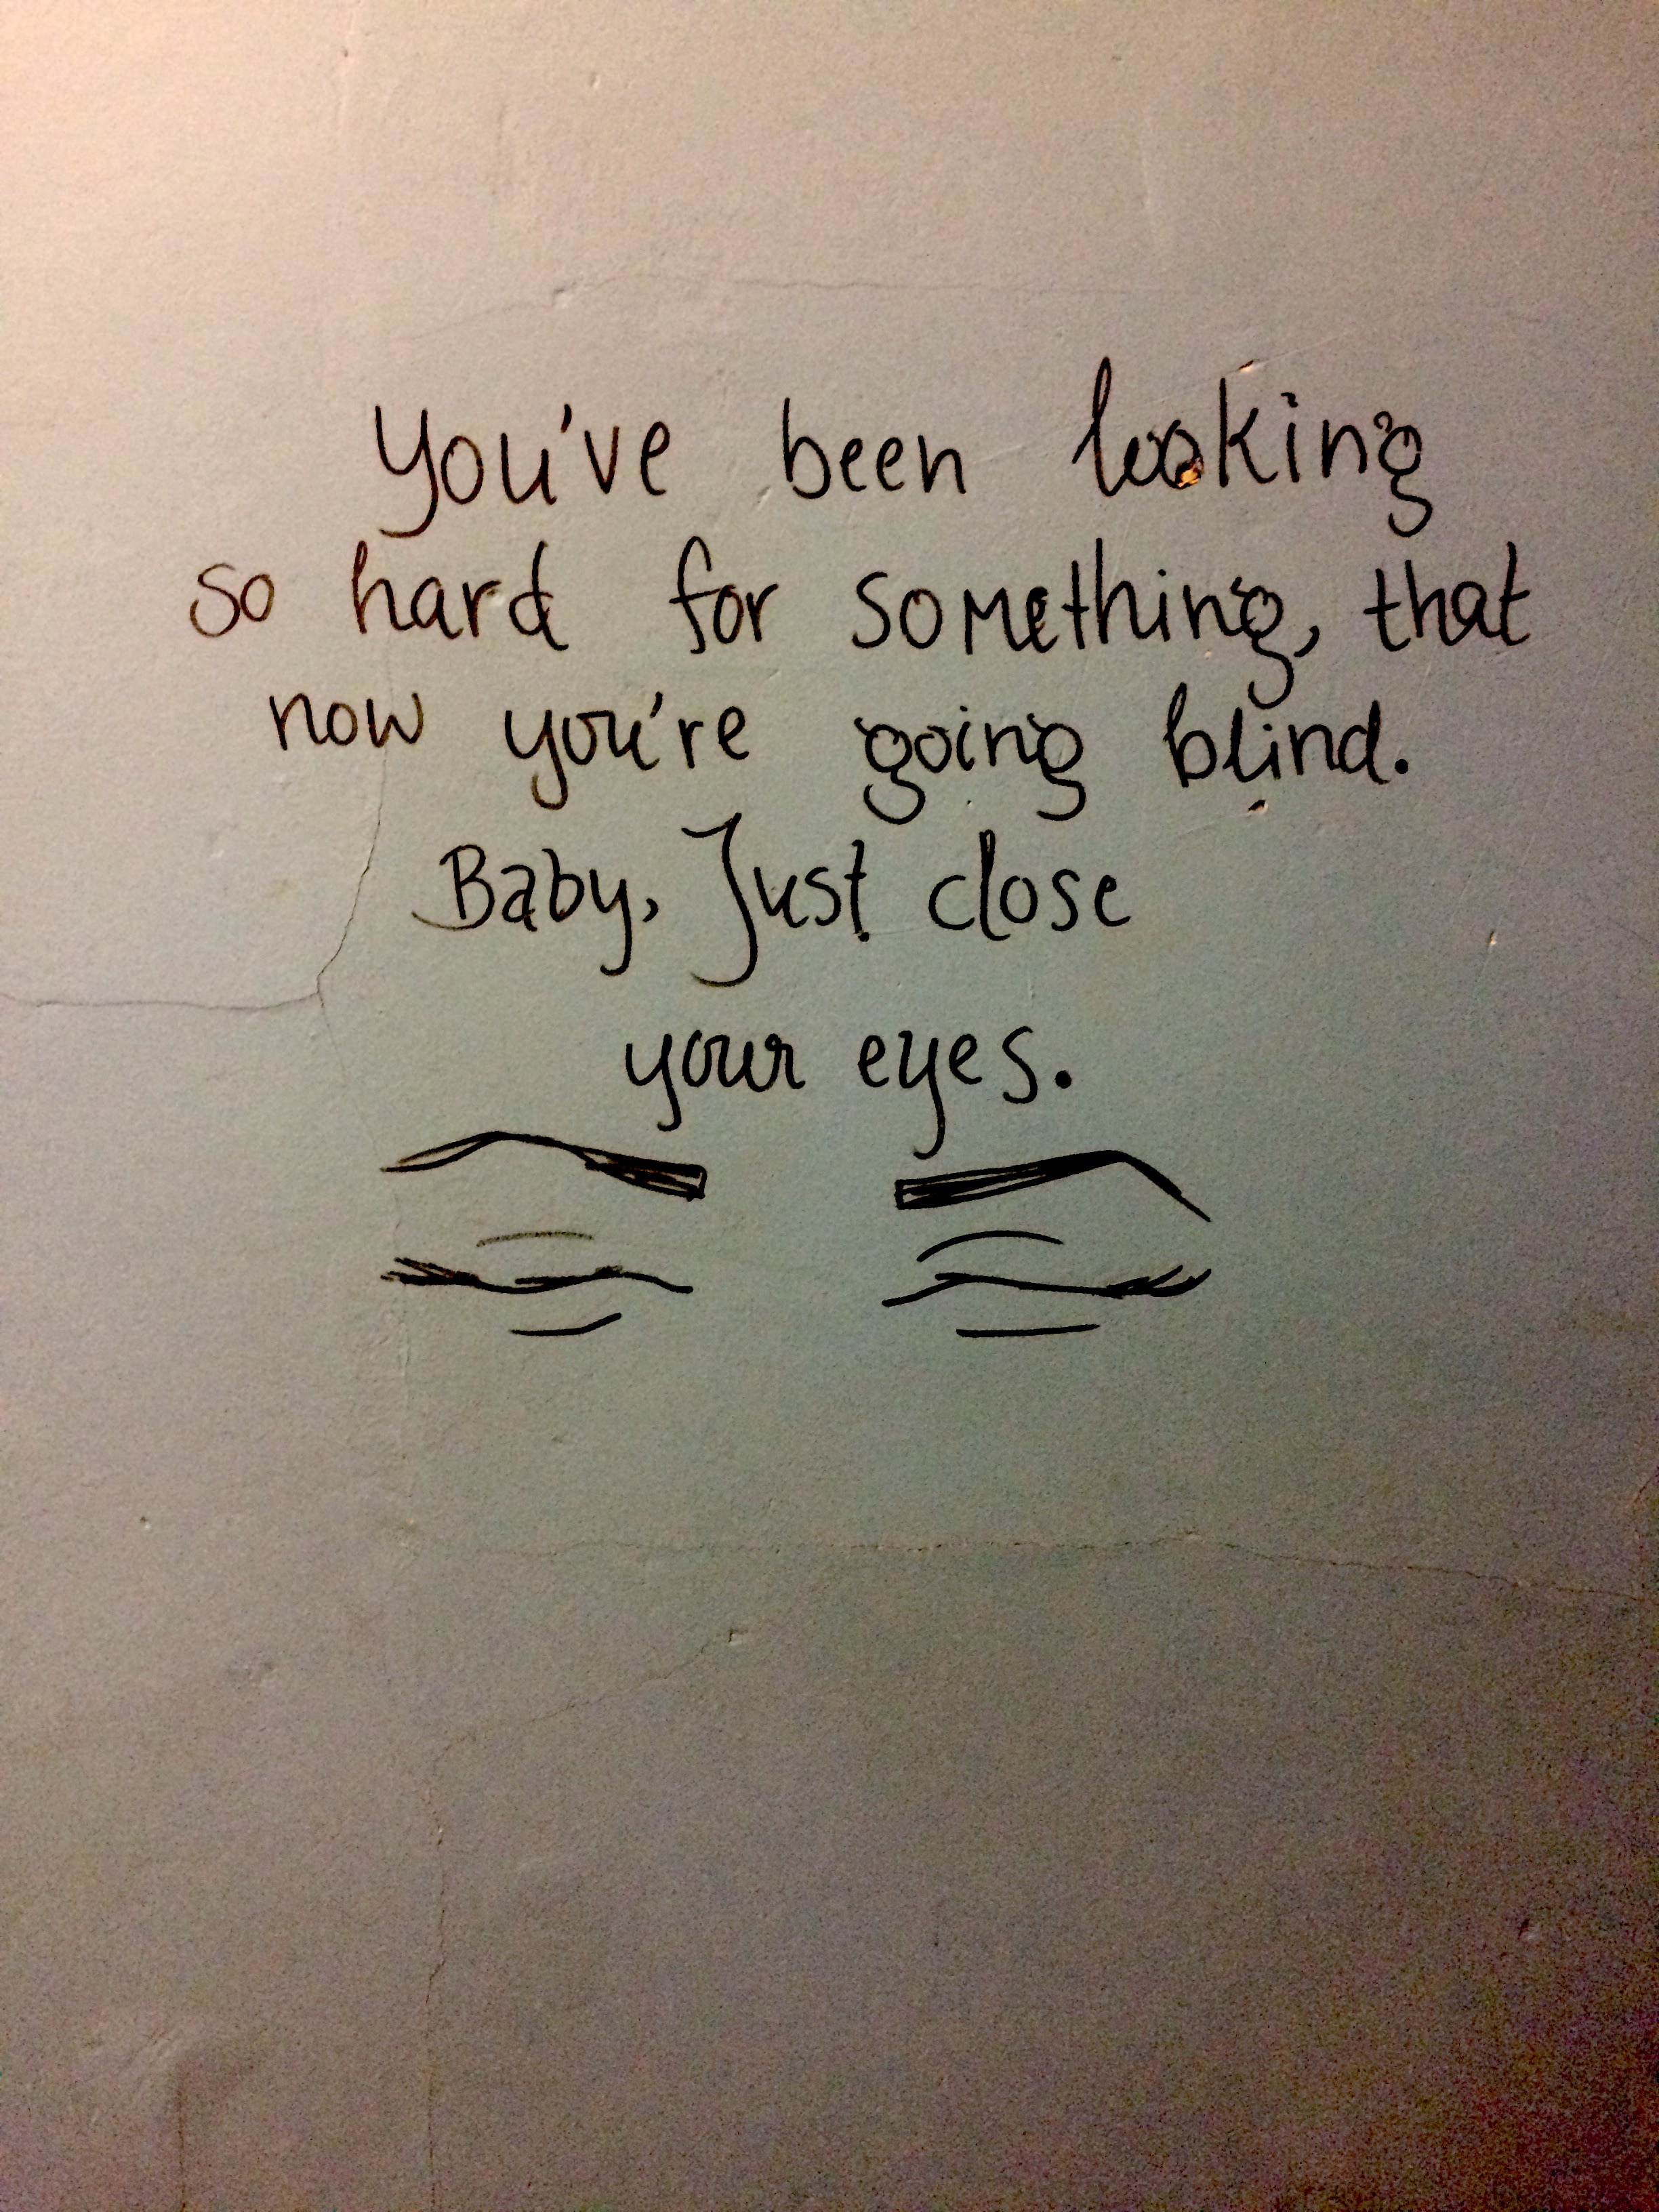 You've been looking
so hard for something, that
now you're going blind.
Baby, Just close
your eyes.